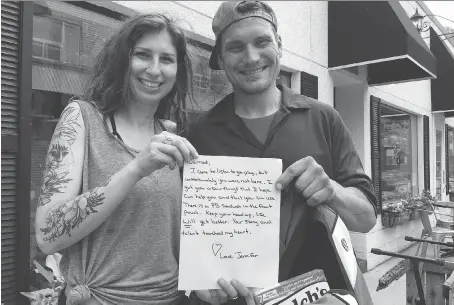 Jerrad,
I came to listen to you play, but
unfortunately you were not here. I
got you a few things that I hope
can help you and that you can use.
There is a PB Sandwich in the front
pouch. Keep your head up, life
Will get better. Your story and
talent touched my heart.
♡ Love Jennifer
Welch's